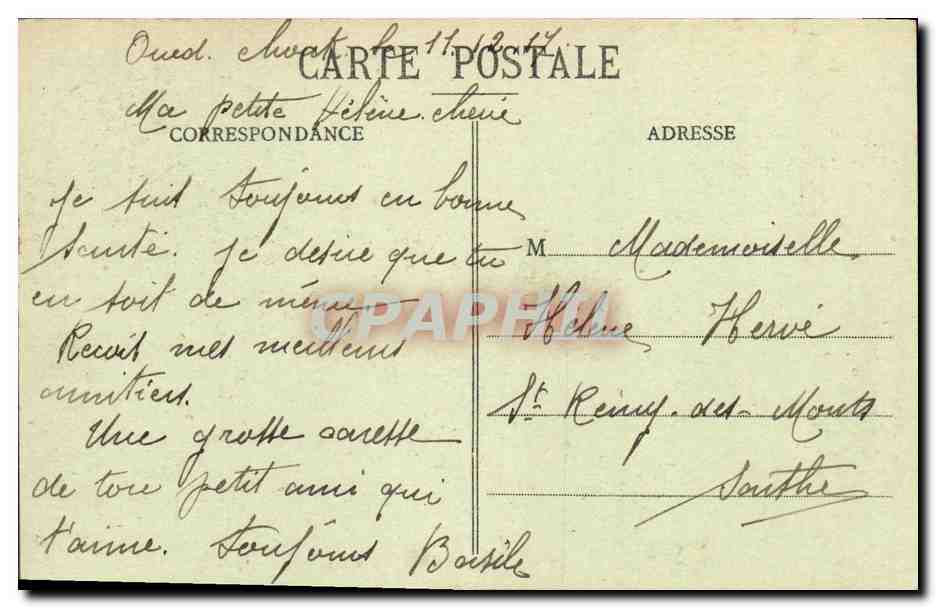 Oued. le 11.12.17.
CARTE POSTALE
Ma petite Hélène cherie
CORRESPONDANCE
Je suis toujours en bonne
Santé. Je desire que tu
en soit de même
Recoit mes meilleurs
amitiers.
Une grosse caresse
de ton petit ami qui
t'aime. Toujours Basile
ADRESSE
M Mademoiselle
Helene Hervé
St Remy-des-Monts
Sarthe
CPAPHIL